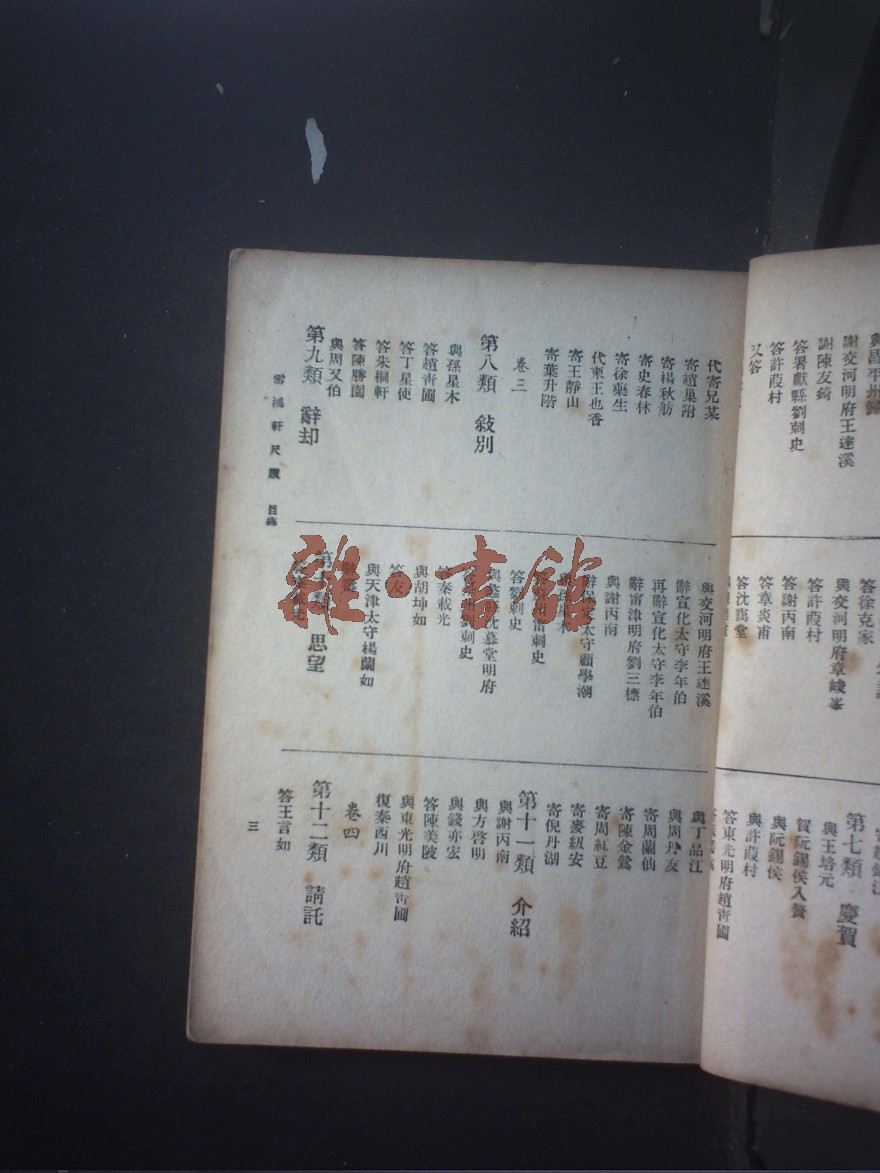 與昌平州
謝交河明府王達溪
謝陳友錡
答署獻縣劉刺史
答許葭村
又答
答徐克家
與交河明府章峻峯
答許葭村
答謝丙南
答章炎甫
答沈靄堂
第七類 慶賀
與王培元
賀阮錫侯入贅
與阮錫侯
與許葭村
答東光明府趙靑圃
代寄兄某
寄趙巢附
寄楊秋舫
寄史春林
寄徐藥生
代柬王也香
寄王靜山
寄葉升階
卷三
第八類 敍別
與孫星木
答趙靑圃
答丁星使
答朱桐軒
答陳勝園
與周又伯
第九類 辭却
與交河明府王達溪
辭宣化太守李年伯
再辭宣化太守李年伯
辭甯津明府劉三標
與謝丙南
太守顧學潮
刺史
答劉刺史
沈慕堂明府
劉刺史
答秦載光
與胡坤如
答友
與天津太守楊蘭如
思望
與丁品江
與周丹友
寄周蘭仙
寄陳金鶯
寄周紅豆
寄麥紉安
寄倪丹湖
第十一類 介紹
與謝丙南
與方啓明
與錢亦宏
答陳美陂
與東光明府趙靑圃
復秦西川
卷四
第十二類 請託
答王言如
雪鴻軒尺牘 目錄
三
雜·書館